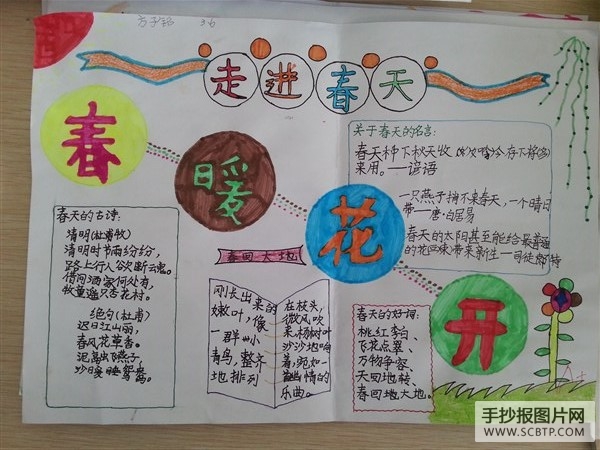 3.6
走进春天
春
暖
花
开
关于春天的名言:
春天种下秋天收
来用。——谚语
一只燕子捎不来春天,一个晴日
带——唐·白居易
春天的太阳甚至能给最普通
的花
带来新生——司徒
春天的古诗:
清明(杜牧)
清明时节雨纷纷,
路上行人欲断云魂。
借问酒家何处有,
牧童遥只杏花村。
绝句(杜甫)
迟日江山丽,
春风花草香。
泥融飞燕子,
沙日暖睡鸳鸯。
春回大地
刚长出来的
嫩叶,像
一群小
青鸟,整齐
地排列
在枝头,
微风吹
来,杨树叶
沙沙地响
着,宛如一
情的
乐曲。
春天的好词:
桃红李白、
飞花点翠、
万物争容、
天回地转、
春回地大地。
A+
手抄报图片网
WWW.SCBTP.COM